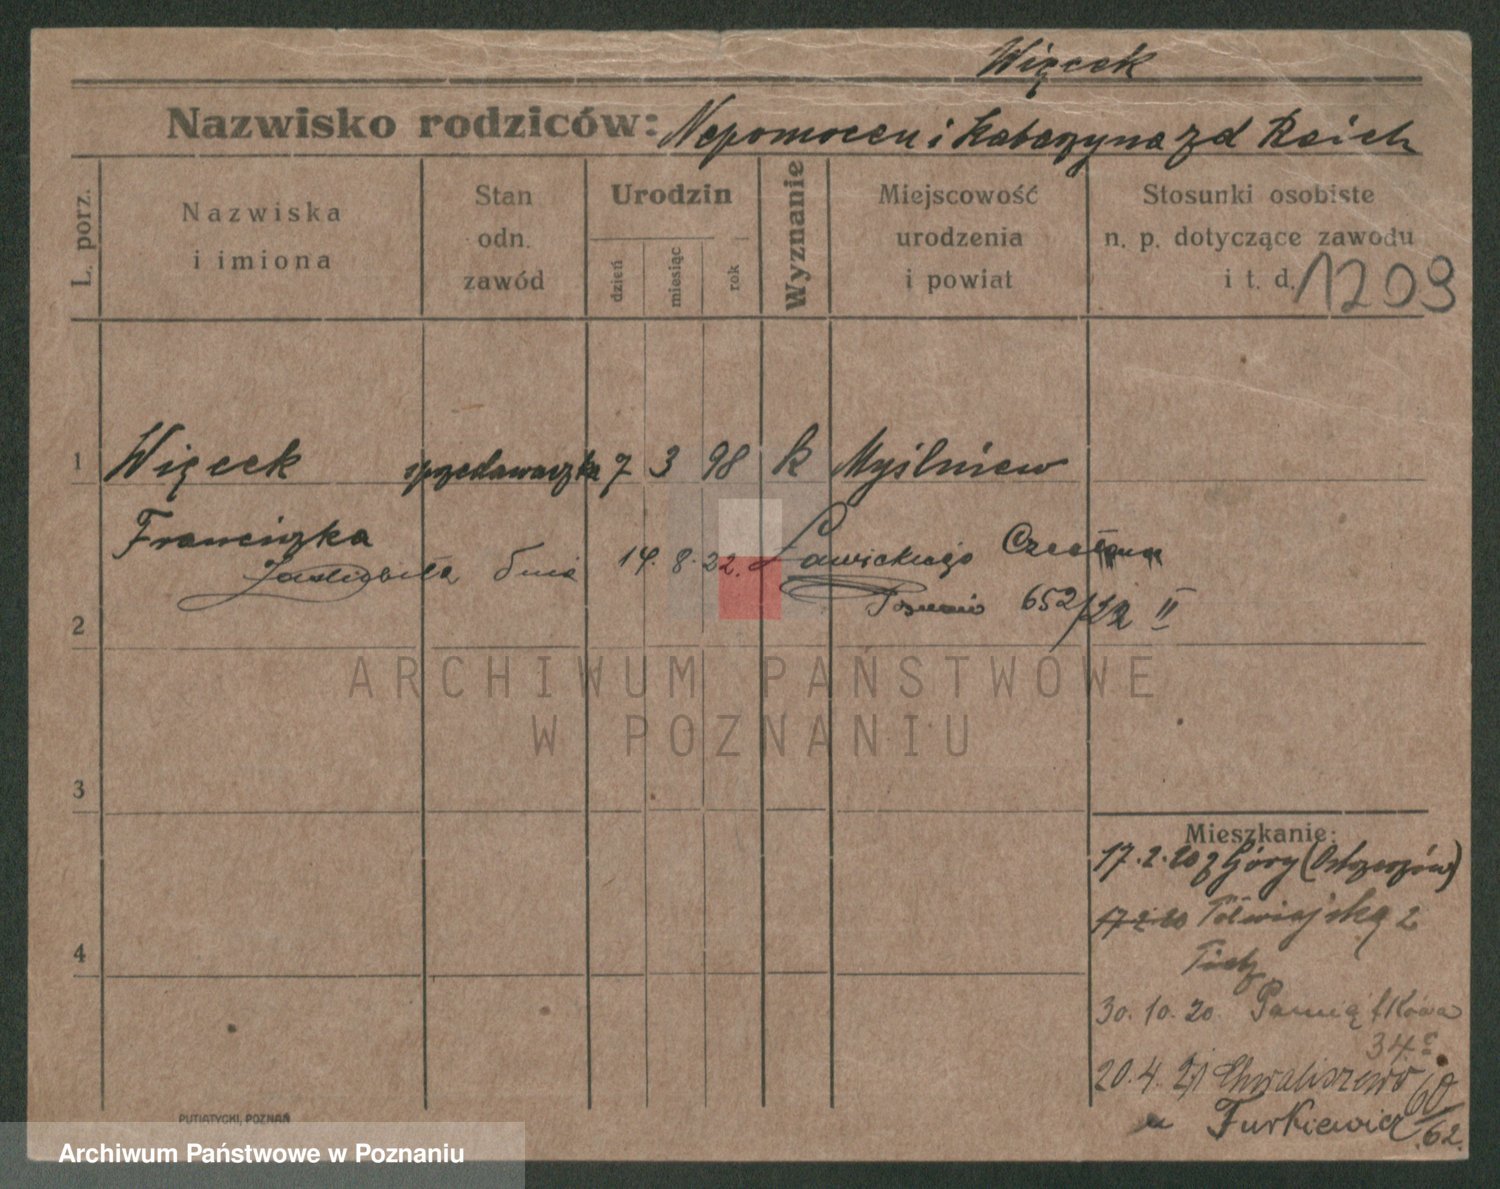 Więcek
Nazwisko rodziców: Nepomocen i Katarzyna zd Reich
L. porz.
Nazwiska
i imiona
Stan
odn.
zawód
Urodzin
dzień
miesiąc
rok
Wyznanie
Miejscowość
urodzenia
i powiat
Stosunki osobiste
n. p. dotyczące zawodu
i t. d.
1209
1 Więcek sprzedawaczka 7 3 98 k Myślniew
Franciszka
Zaślubiła dnia 14. 8. 22. Ławickiego Czesława
Poznań 652/22 II
2
ARCHIWUM PAŃSTWOWE
W POZNANIU
3
Mieszkanie:
17.2.20 z Góry (Ostrzeszów)
17.2.20 Półwiejską 2
4
30.10.20.
34
20.4.21 Chwaliszewo 60/62.
u Turkiewicz
PUTIATYCKI, POZNAŃ
Archiwum Państwowe w Poznaniu